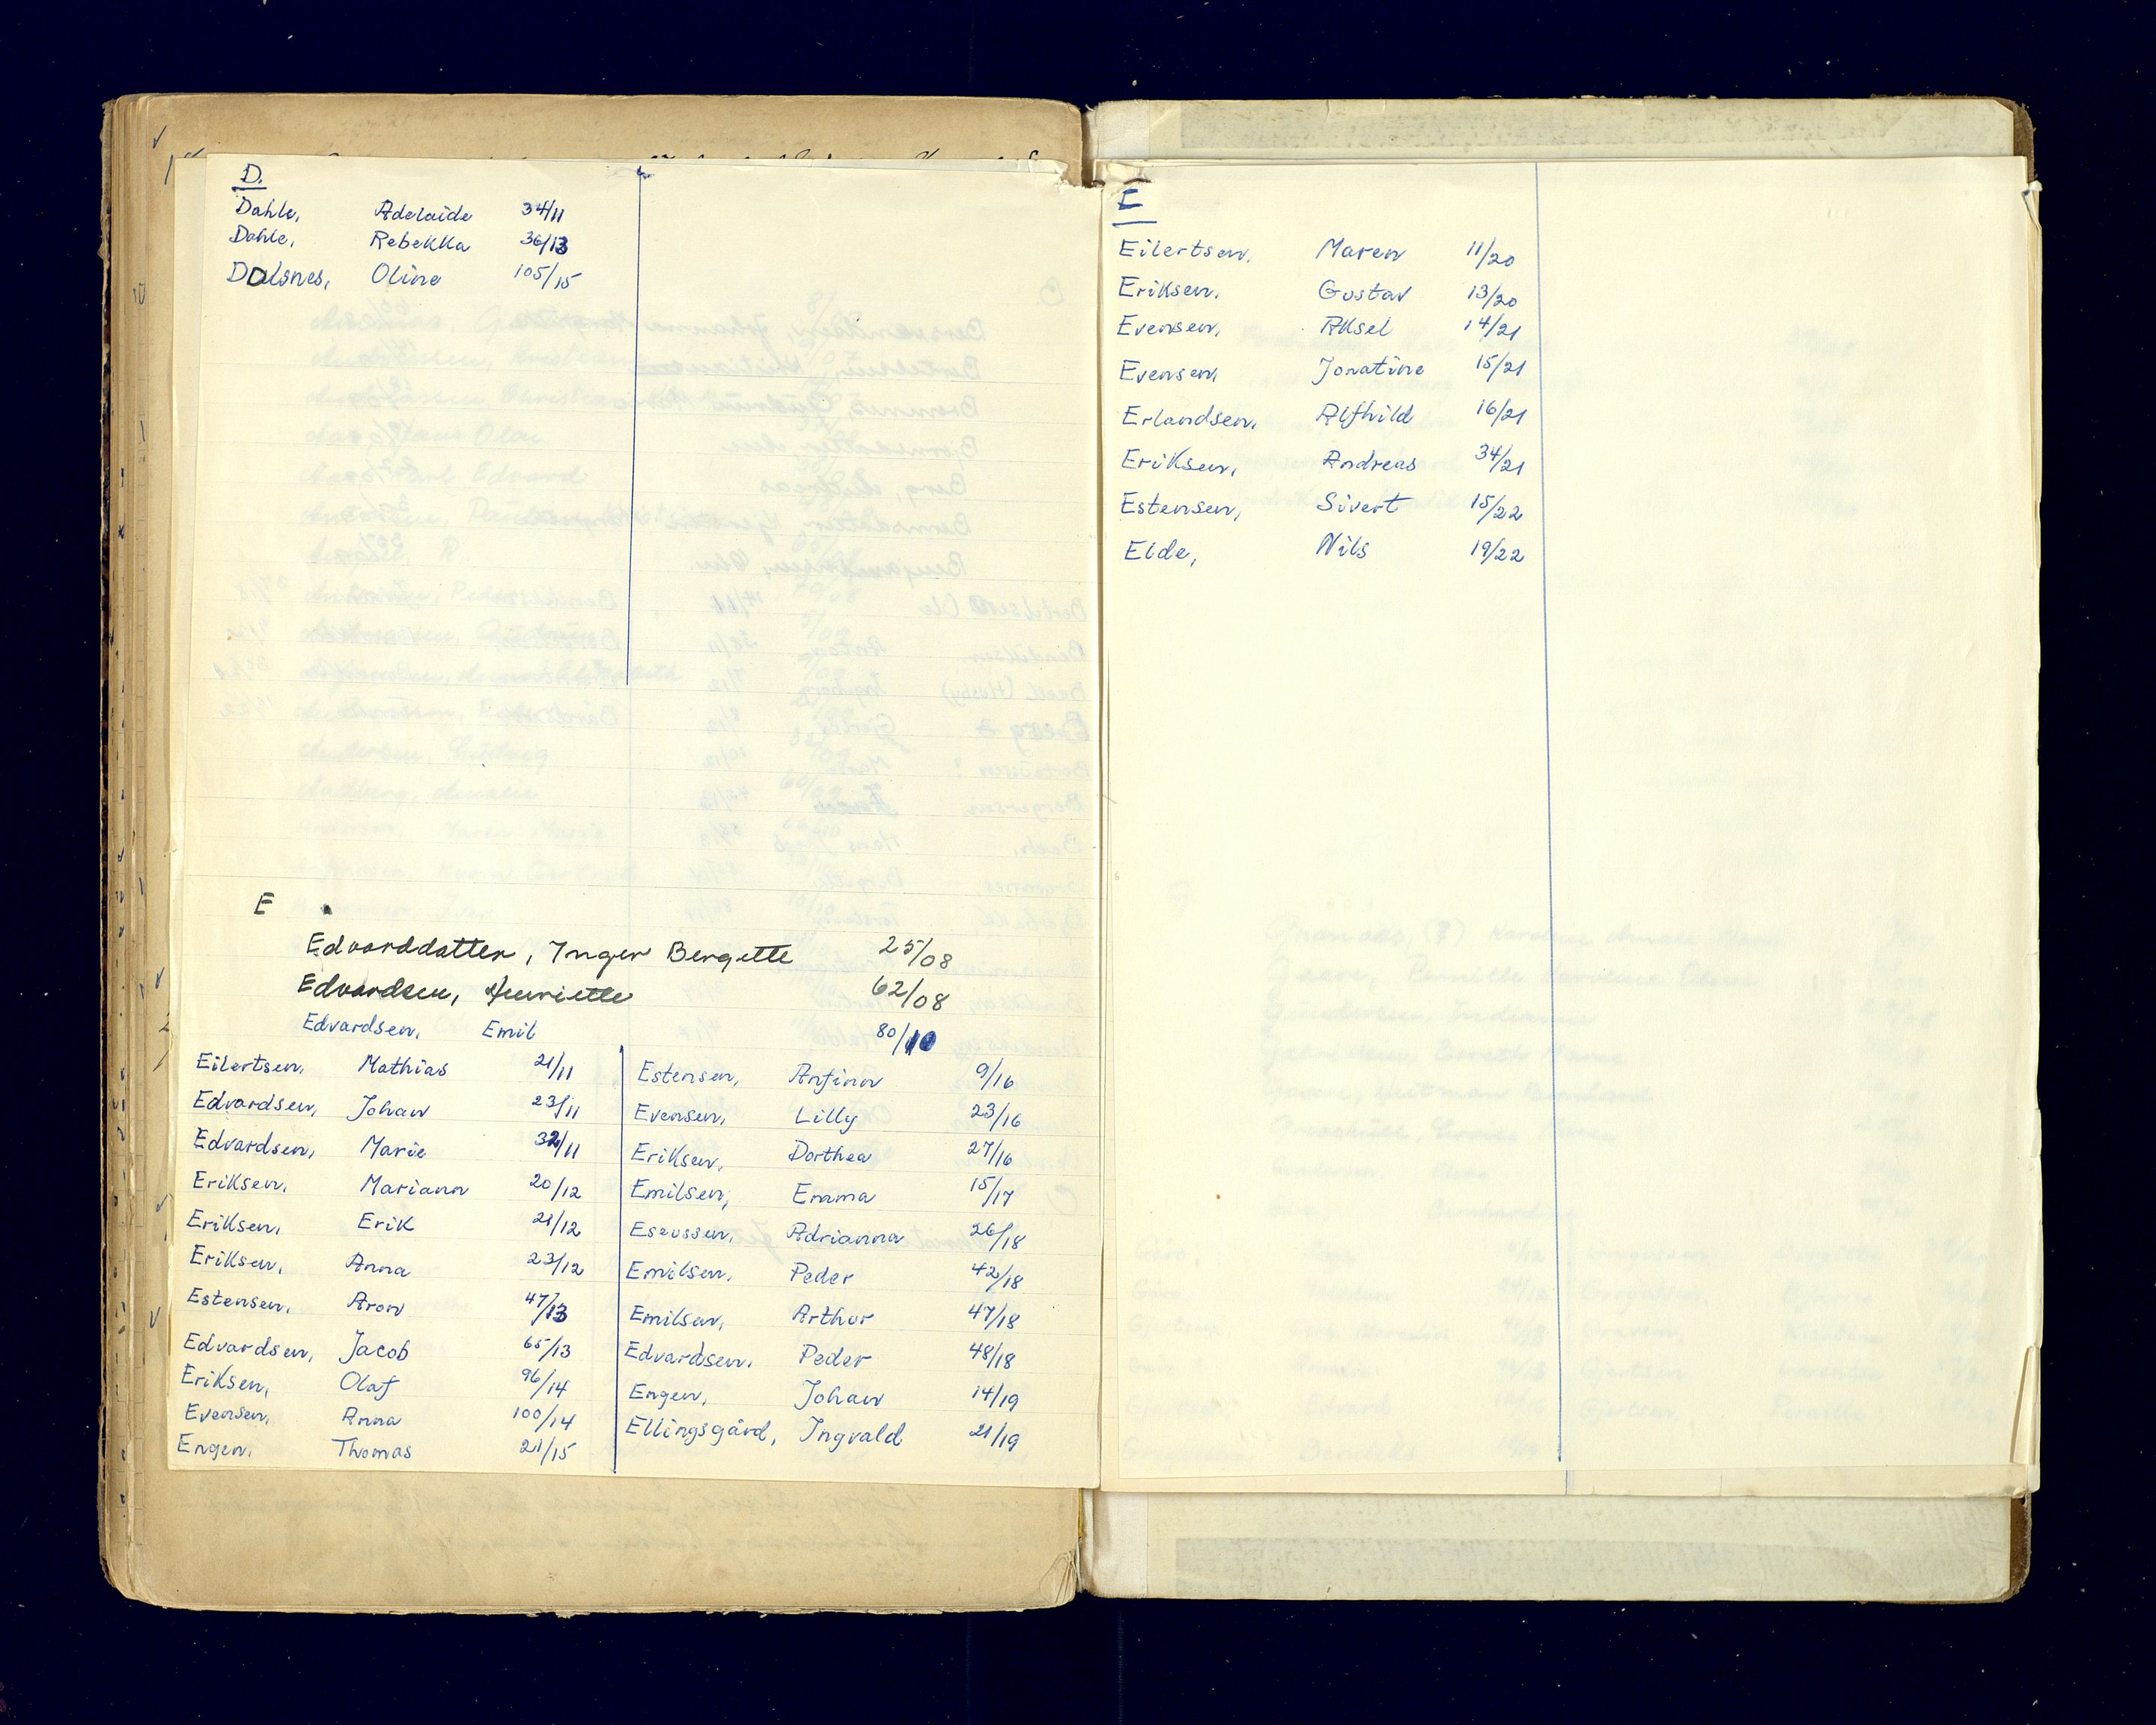 D.
Dahle, Adelaide 34/11
Dahle, Rebekka 36/13
Dalsnes, Oline 105/15
E
Edvarddatter, Inger Bergette 25/08
Edvardsen, Henriette 62/08
Edvardsen, Emil 80/10
Eilertsen, Mathias 21/11
Edvardsen, Johan 23/11
Edvardsen, Marie 32/11
Eriksen, Mariann 20/12
Eriksen, Erik 21/12
Eriksen, Anna 23/12
Estensen, Aron 47/13
Edvardsen, Jacob 65/13
Eriksen, Olaf 96/14
Evensen, Anna 100/14
Engen, Thomas 21/15
Estensen, Anfinn 9/16
Evensen, Lilly 23/16
Eriksen, Dorthea 27/16
Emilsen, Emma 15/17
Adrianna 26/18
Emilsen, Peder 42/18
Emilsen, Arthur 47/18
Edvardsen, Peder 48/18
Engen, Johan 14/19
Ellingsgård, Ingvald 21/19
E
Eilertsen, Maren 11/20
Eriksen, Gustav 13/20
Evensen, Aksel 14/21
Evensen, Jonatine 15/21
Erlandsen, Alfhild 16/21
Eriksen, Andreas 34/21
Estensen, Sivert 15/22
Elde, Nils 19/22